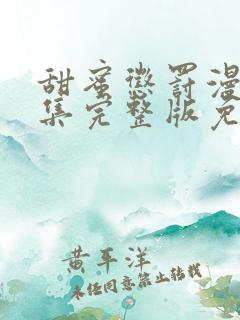 甜蜜惩罚漫
集完整版免
黄平洋
未经同意禁止转载